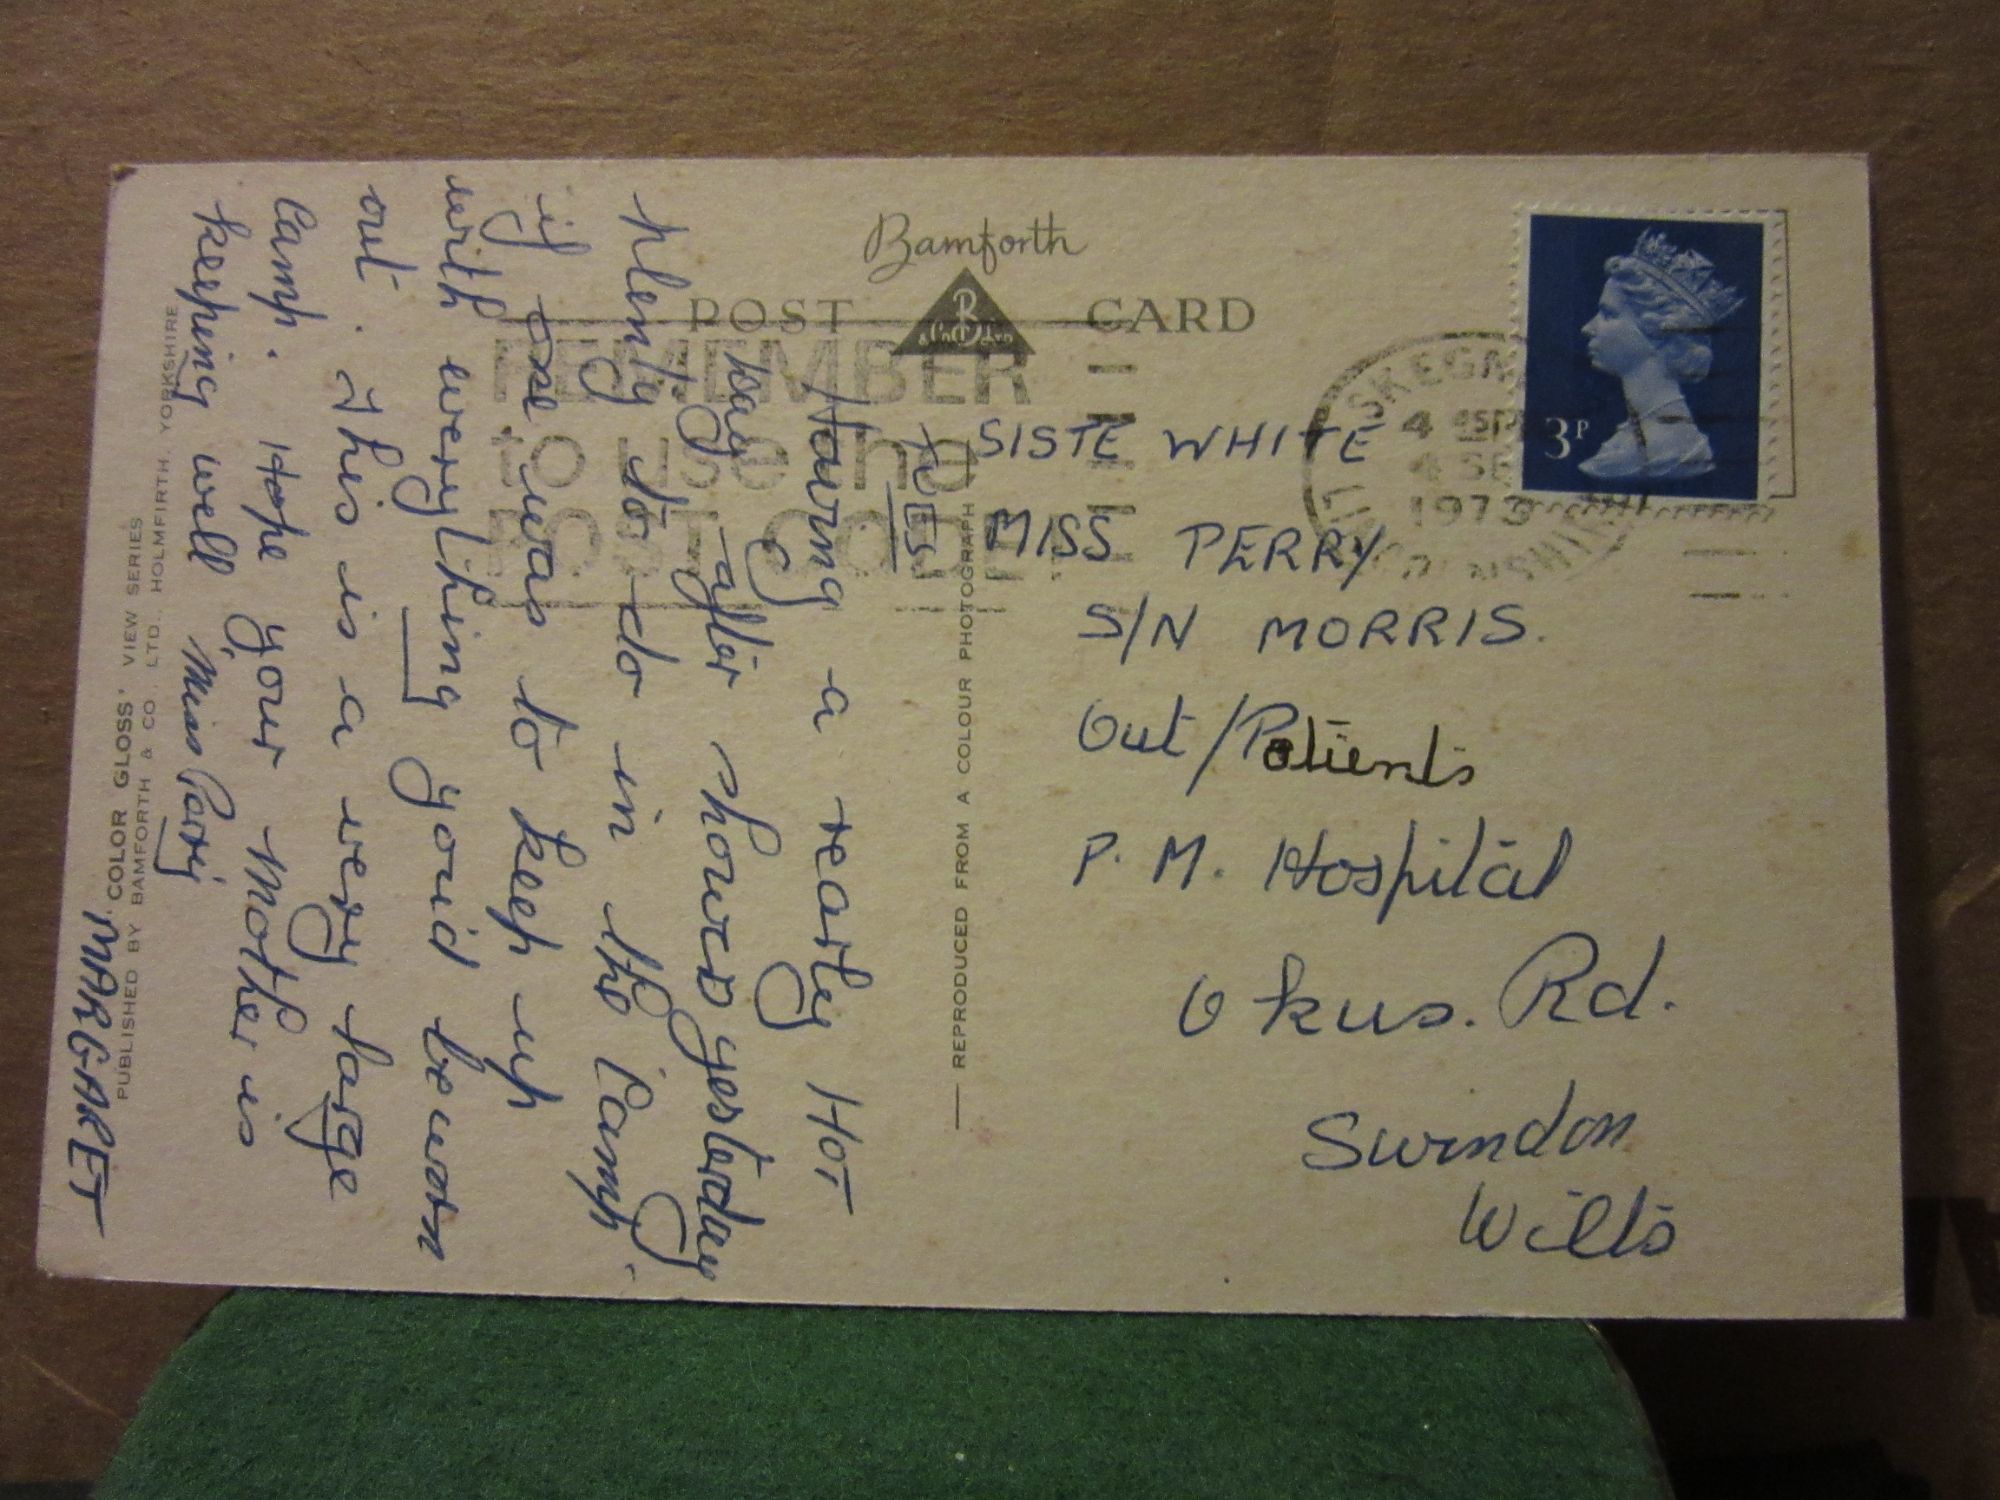 Bamforth
POST CARD
REMEMBER
to use the
POST CODE
SKEGN
4 15 PM
4 SEP
1973
3P
TUES
Having a really HOT
day after showed yesterday
plenty to do in the Camp.
if one was to keep up
with everything you'd be worn
out. This is a very large
Camp. Hope your Mother is
keeping well Miss Perry
MARGARET
SISTE WHITE
MISS PERRY
S/N MORRIS.
Out/Patients
P. M. Hospital
Okus. Rd.
Swindon
Wilts
REPRODUCED FROM A COLOUR PHOTOGRAPH
'COLOR GLOSS' VIEW SERIES
PUBLISHED BY BAMFORTH & CO. LTD., HOLMFIRTH, YORKSHIRE